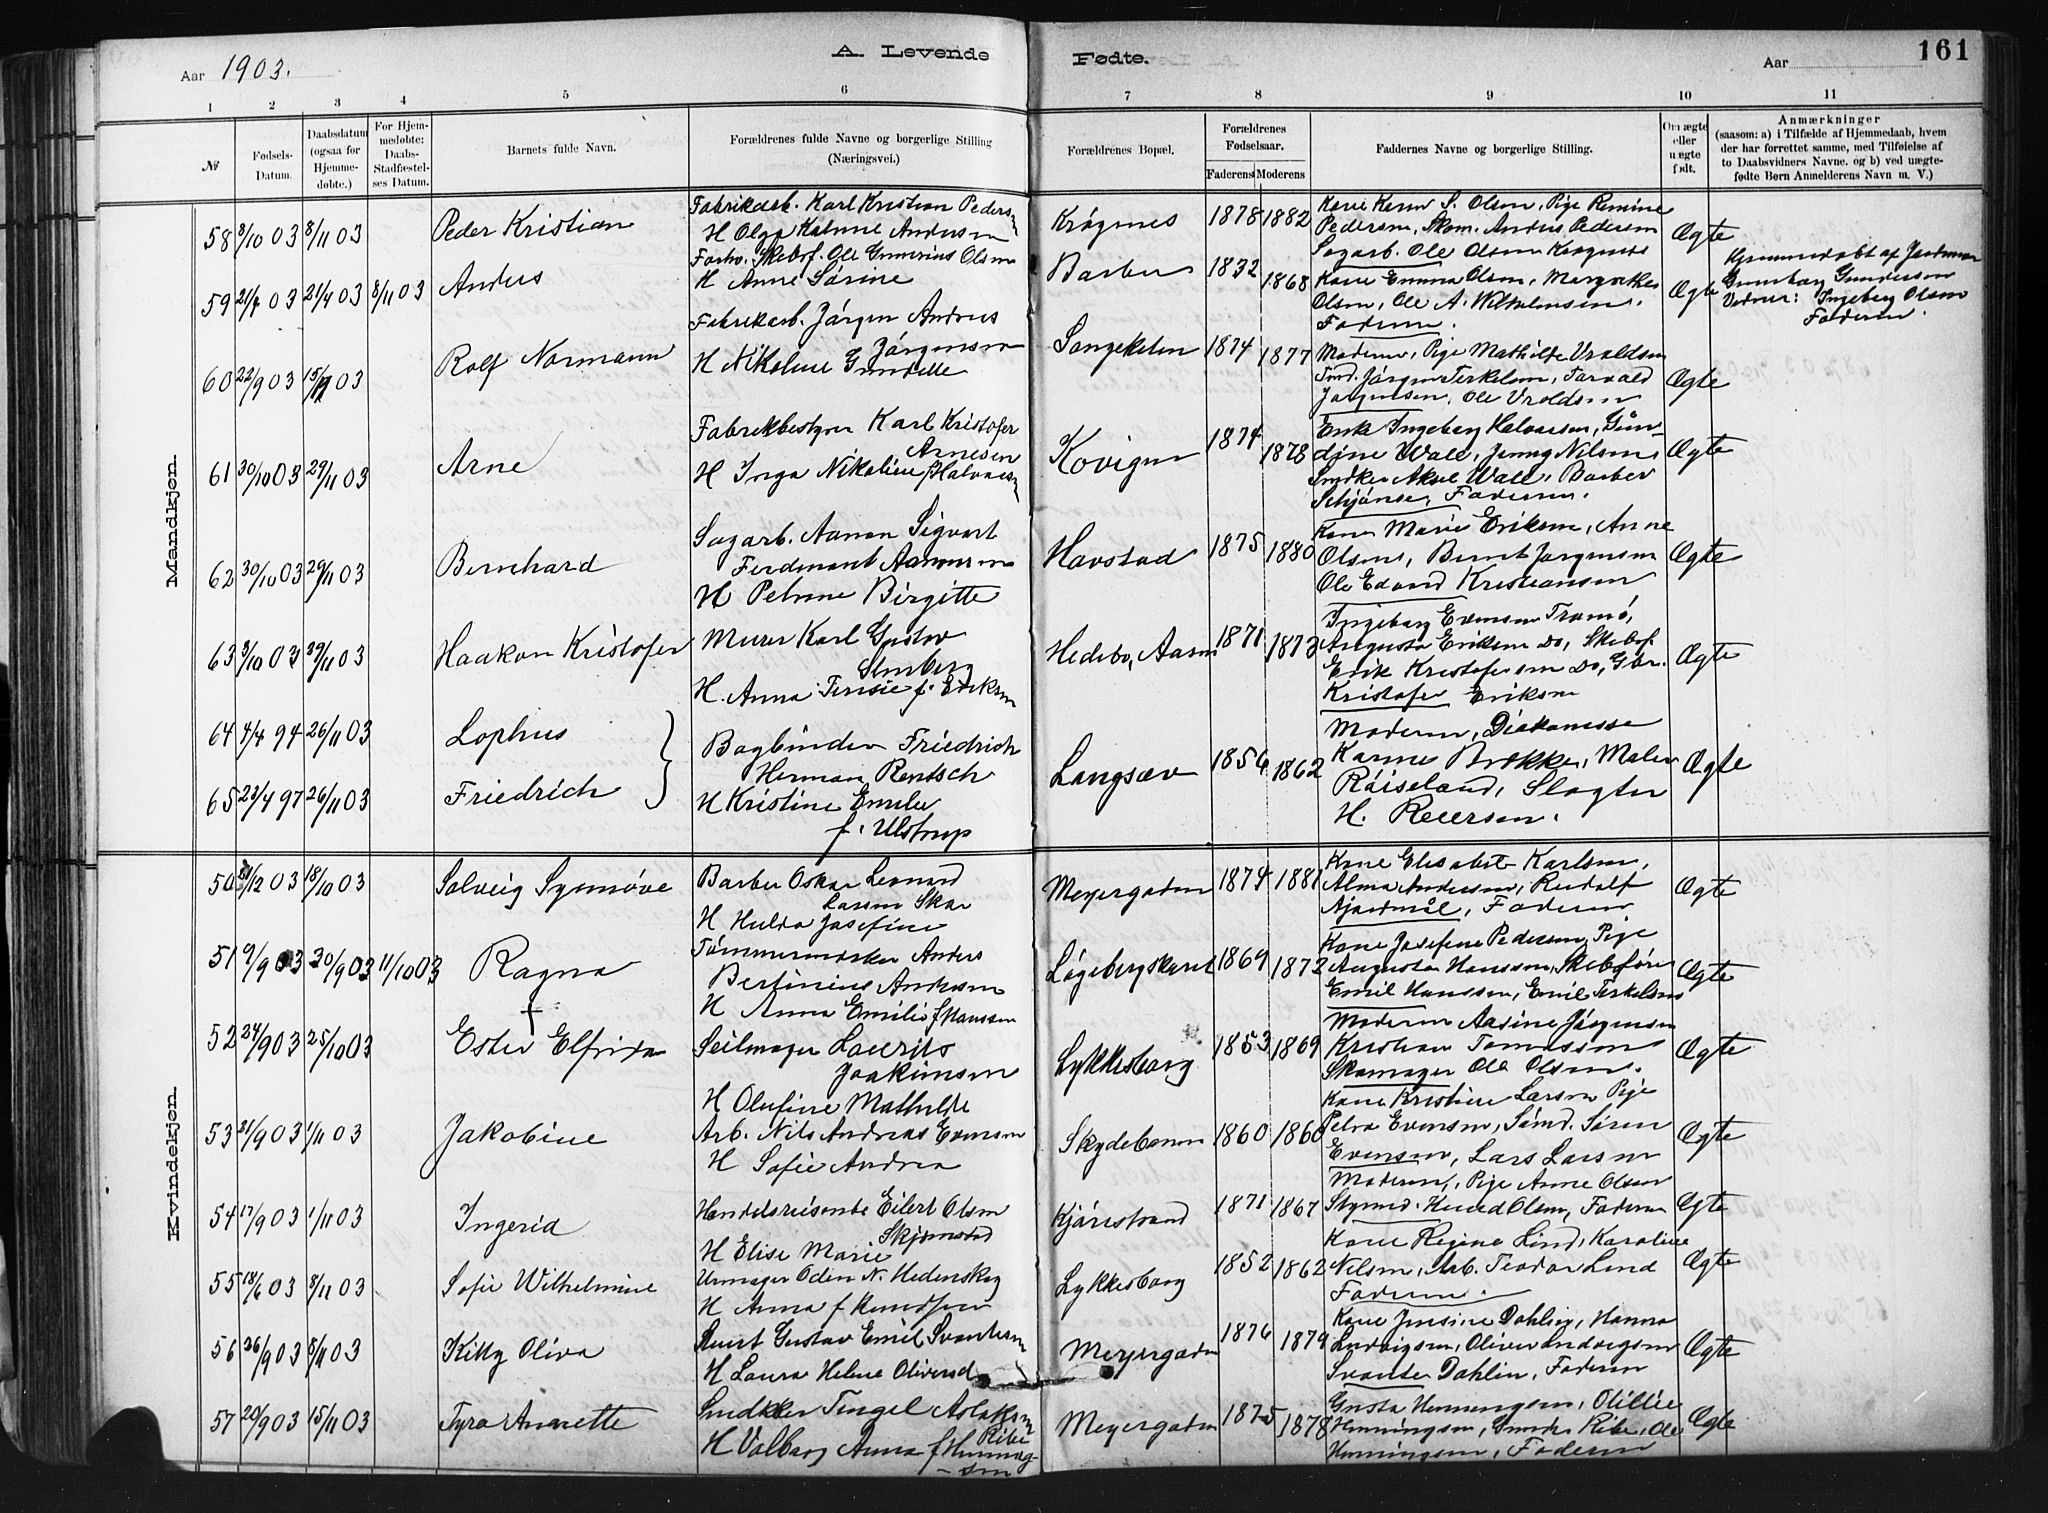 Aar 1903.
A. Levende
Fødte.
Aar
161
1 2 3 4 5 6 7 8 9 10 11
№
Fødsels-
Datum.
Daabsdatum
(ogsaa for
Hjemme-
døbte.)
For Hjem-
medøbte:
Daabs-
Stadfæstel-
ses Datum.
Barnets fulde Navn.
Forældrenes fulde Navne og borgerlige Stilling
(Næringsvei.)
Forældrenes Bopæl.
Forældrenes
Fødselsaar.
Faderens Moderens
Faddernes Navne og borgerlige Stilling.
Om ægte
eller
uægte
født.
Anmærkninger
(saasom: a) i Tilfælde af Hjemmedaab, hvem
der har forrettet samme, med Tilføielse af
to Daabsvidners Navne. og b) ved uægte-
fødte Børn Anmelderens Navn m. V.)
Mandkjøn.
58 8/10 03 8/11 03
Peder Kristian
Fabrikarb. Karl Kristian Pedersen
H Olga Andersen
1878 1882
Pedersen, Skom. Anders Pedersen
Sagarb. Ole Olsen
Ægte
59 21/7 03 8/11 03
Anders
Ole Gunerius Olsen
H Anne Sørine
Barbu
1832 1868
Kone Emma Olsen,
Olsen, Ole A. Wilhelmsen.
Faderen.
Ægte
Hjemmedøbt af
Gundersen
Ingeborg Olsen
Faderen.
60 22/9 03
Rolf Normann
Fabrikarb. Jørgen Andreas
Jørgensen
H Nikoline
1874 1877
Moderen, Pige Mathilde Vroldsen
Jørgen Terkelsen, Torvald
Jørgensen, Ole Vroldsen
Ægte
61 30/10 03 29/11 03
Arne
Fabrikbestyrer Karl Kristofer
Arnesen
H Inga Nikoline f Halvorsen
Kovigen
1874 1878
Enke Ingeborg Halvorsen, Gun-
dine Wall, Jenny Nilsen,
Wall, Barber
Faderen.
Ægte
62 30/10 03 29/11 03
Bernhard
Sagarb. Aanon Sigvart
Ferdinant Aanonsen
H Petrine Birgitte
Havstad
1875 1880
Kone Marie Eriksen, Anne
Olsen, Bernt Jørgensen
Ole Edvard Kristiansen
Ægte
63 3/10 03 29/11 03
Haakon Kristofer
Murer Karl Gustav
Stenberg
H. Anna Teresie f. Eriksen
Hedebo,
1871 1873
Ingeborg Evensen Tromø,
Augusta Eriksen Do, Skibsf
Erik Kristofersen Do,
Kristofer Eriksen
Ægte
64 4/4 94 26/11 03
Lophus
65 23/4 97 26/11 03
Friedrich
Bogbinder Friedrich
Herman Rentsch
H Kristine Emilie
f. Ulstrup
Langsæv
1856 1862
Moderen, Diakonisse
Karine Brekke, Maler
Røiseland, Slagter
H. Reiersen.
Ægte
Kvindekjøn.
50 03 18/10 03
Solveig Synnøve
Barber Oskar Leonard
Larsen Skar
H Hulda Josefine
Meyergaden
1874 1881
Kone Elisabet Karlsen,
Alma Andersen, Rudolf
Faderen
Ægte
51 9/9 03 20/9 03 11/10 03
Ragna
Tømmermerker Anders
Bertinius Andersen
H Anna Emilie f Hanssen
Løgebergskaret
1869 1872
Kone Josefine Pedersen, Pige
Augusta Hanssen, Skibsfører
Emil Hanssen, Emil Terkelsen
Ægte
52 24/9 03 25/10 03
Ester Elfrida
Seilmager Laurits
Joakimsen
H Olufine Mathilde
Lykkesborg
1853 1869
Moderen Aasine Jørgensen
Kristian Tomassen
Skomager Ole Olsen.
Ægte
53 21/9 03 1/11 03
Jakobine
Arb. Nils Andreas Evensen
H Sofie Andrea
Skydebanen
1860 1860
Kone Kristine Larsen Pige
Petra Evensen, Sømd. Søren
Evensen, Lars Larsen
Ægte
54 17/9 03 1/11 03
Ingerid
Handelsreisende Eilert Olsen
H Elise Marie
1871 1867
Moderen, Pige Anne Olsen
Styrmd. Knud Olsen, Faderen
Ægte
55 18/6 03 8/11 03
Sofie Wilhelmine
Urmager Oden N. Hedenskog
H Anna f Knudsen
Lykkesborg
1852 1862
Kone Regine Lind, Karoline
Nilsen, Arb. Teodor Lind
Faderen.
Ægte
56 26/9 03 8/11 03
Kitty Oliva
Gustav Emil Svantesen
H Laura Helene
Meyergaden
1876 1879
Kone Jensine Dahlin, Hanna
Ludvigsen, Oliver Ludvigsen
Svante Dahlin, Faderen
Ægte
57 20/9 03 15/11 03
Tyra Annette
Tingel Aslaksen
Ribe
H Valborg Anna f Henning-
sen
Meyergaden
1875 1878
Gusta Henningsen, Otillie
Henningsen, Ribe, Ole
Henningsen, Faderen
Ægte